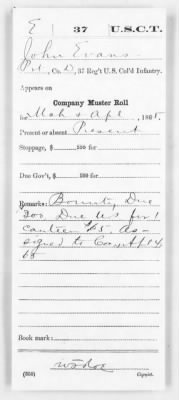 E | 37 | U.S.C.T.
John Evans
Pvt, Co. D, 37 Reg't U. S. Col'd Infantry.
Appears on
Company Muster Roll
for Mch & Apl, 1865.
Present or absent Present
Stoppage, $ 100 for
Due Gov't, $ 100 for
Remarks: Bounty Due
300, Due US for 1
canteen 65, as-
signed to Co Apl 14,
65
Book mark:
(359) Copyist.